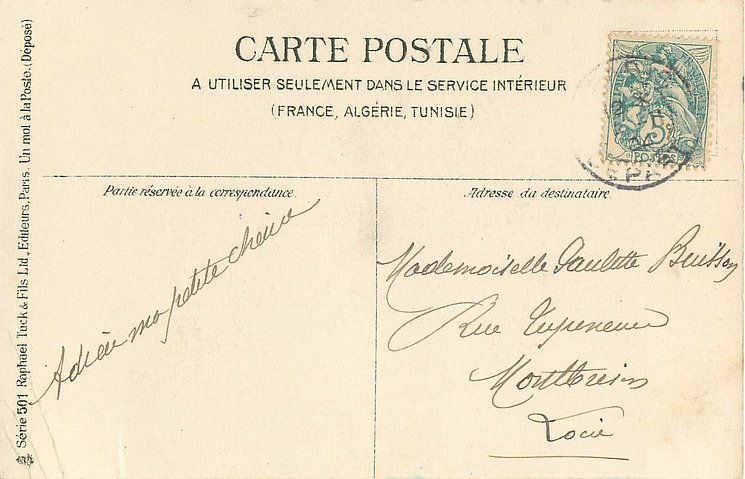 CARTE POSTALE
A UTILISER SEULEMENT DANS LE SERVICE INTÉRIEUR
(FRANCE, ALGÉRIE, TUNISIE)
5
POSTES
Partie réservée à la correspondance.
Adieu ma petite chérie
Adresse du destinataire.
Mademoiselle Paulette Buisson
Rue
Montbrison
Loire
Série 501 Raphael Tuck & Fils Ltd, Editeurs, Paris. Un mot à la Poste. (Déposé)